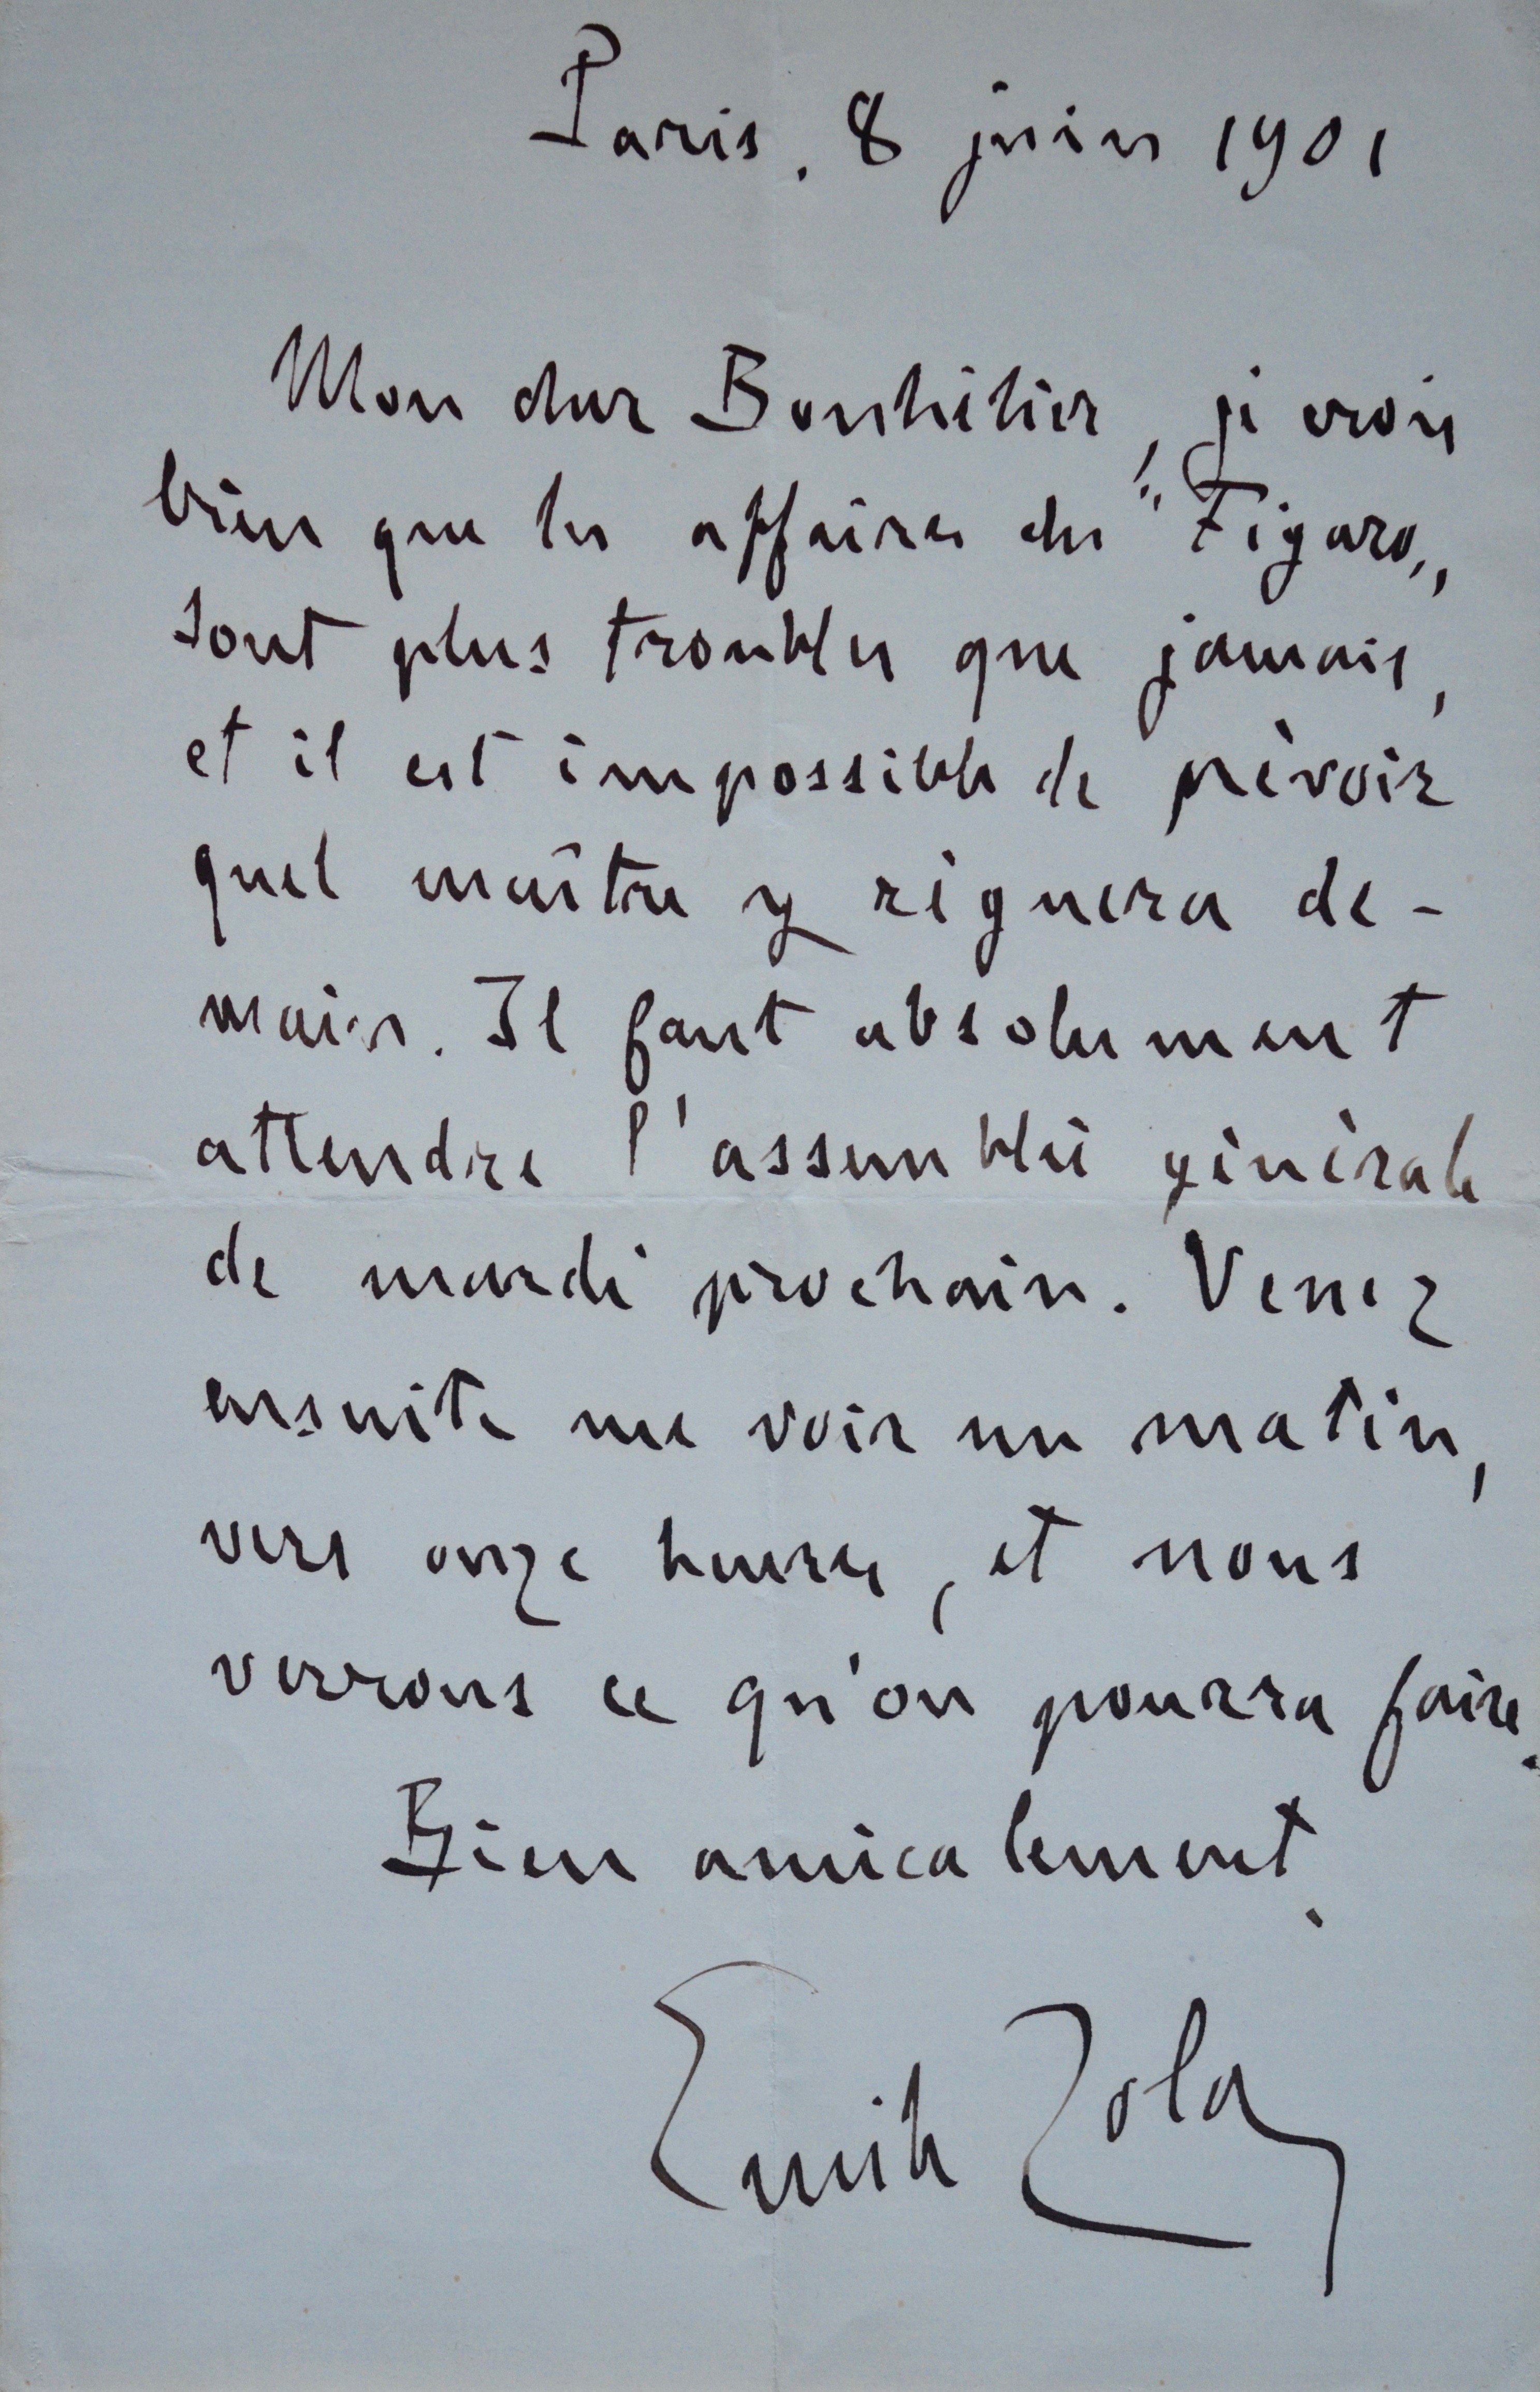 Paris. 8 juin 1901
Mon cher Bouhélier, je crois
bien que les affaires du "Figaro"
sont plus troubles que jamais,
et il est impossible de prévoir
quel maître y régnera de-
main. Il faut absolument
attendre l'assemblée générale
de mardi prochain. Venez
ensuite me voir un matin,
vers onze heures, et nous
verrons ce qu'on pourra faire.
Bien amicalement.
Emile Zola